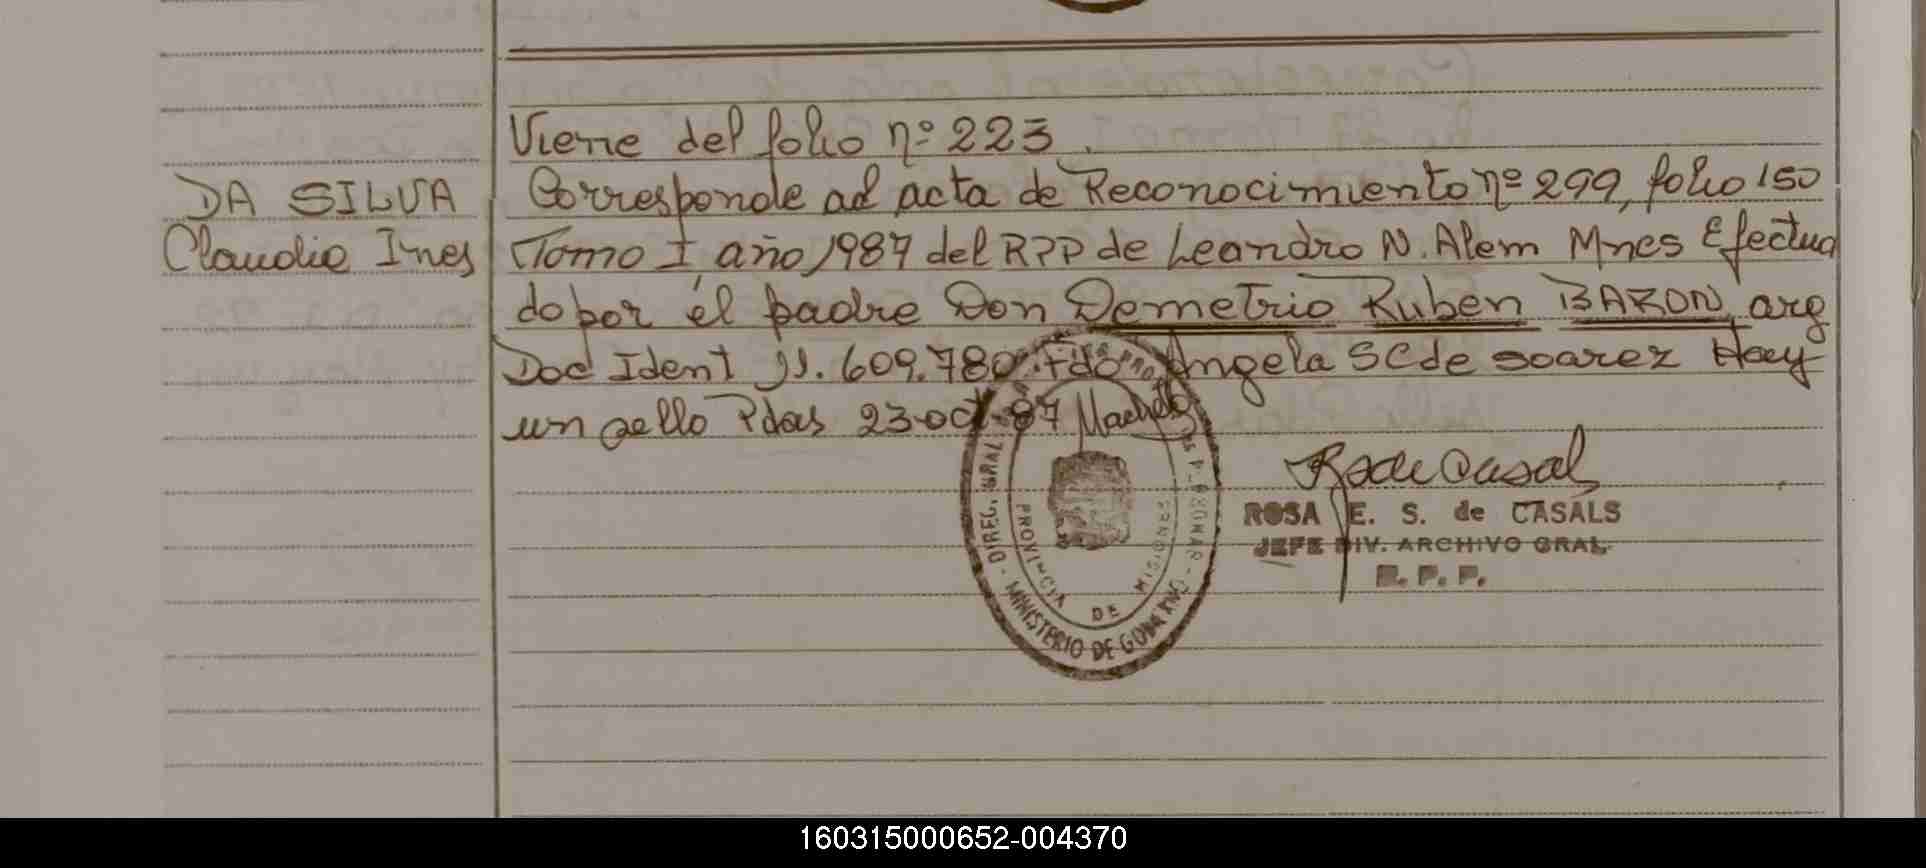 Viene del folio nº 223.
DA SILVA
Claudia Ines
Corresponde al acta de Reconocimiento nº 299, folio 150
Tomo I año 1987 del RPP de Leandro N. Alem Mnes Efectua
do por él padre Don Demetrio Ruben BARON, arg
Doc Ident 11.609.780. Fdo Angela SC de Soarez Hay
un sello Pdas 23 oct 87
DIREC. GRAL
MINISTERIO DE GOBIERNO
PROVINCIA DE MISIONES
ROSA E. S. de CASALS
JEFE DIV. ARCHIVO GRAL.
R. P. P.
160315000652-004370